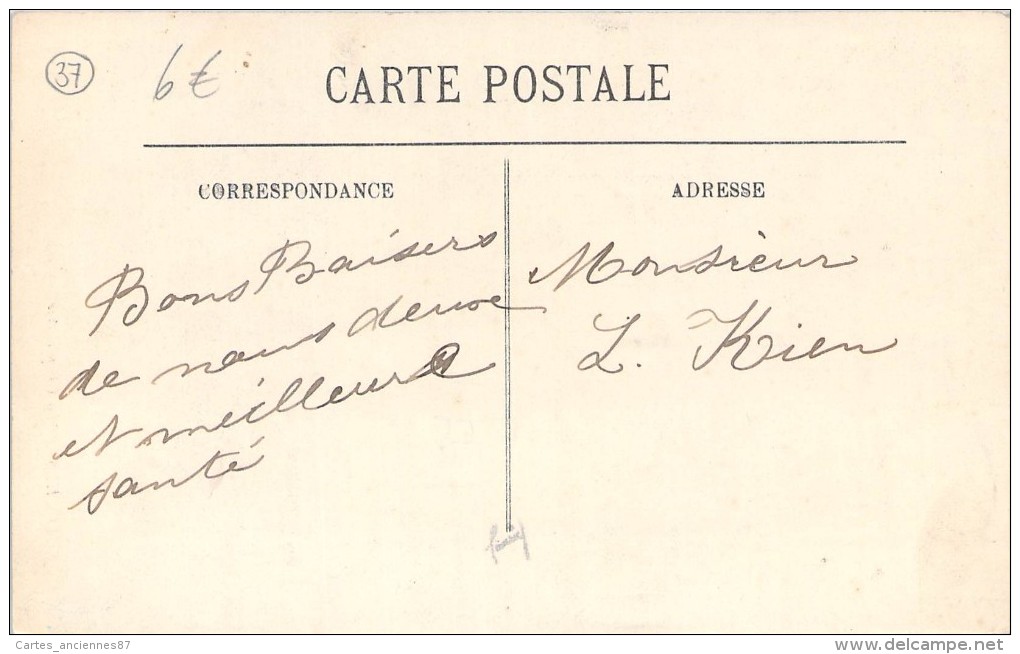 37
6€
CARTE POSTALE
CORRESPONDANCE
Bons Baisers
de nous deux
et meilleure
santé
ADRESSE
Monsieur
L. Kien
Cartes_anciennes87
www.delcampe.net